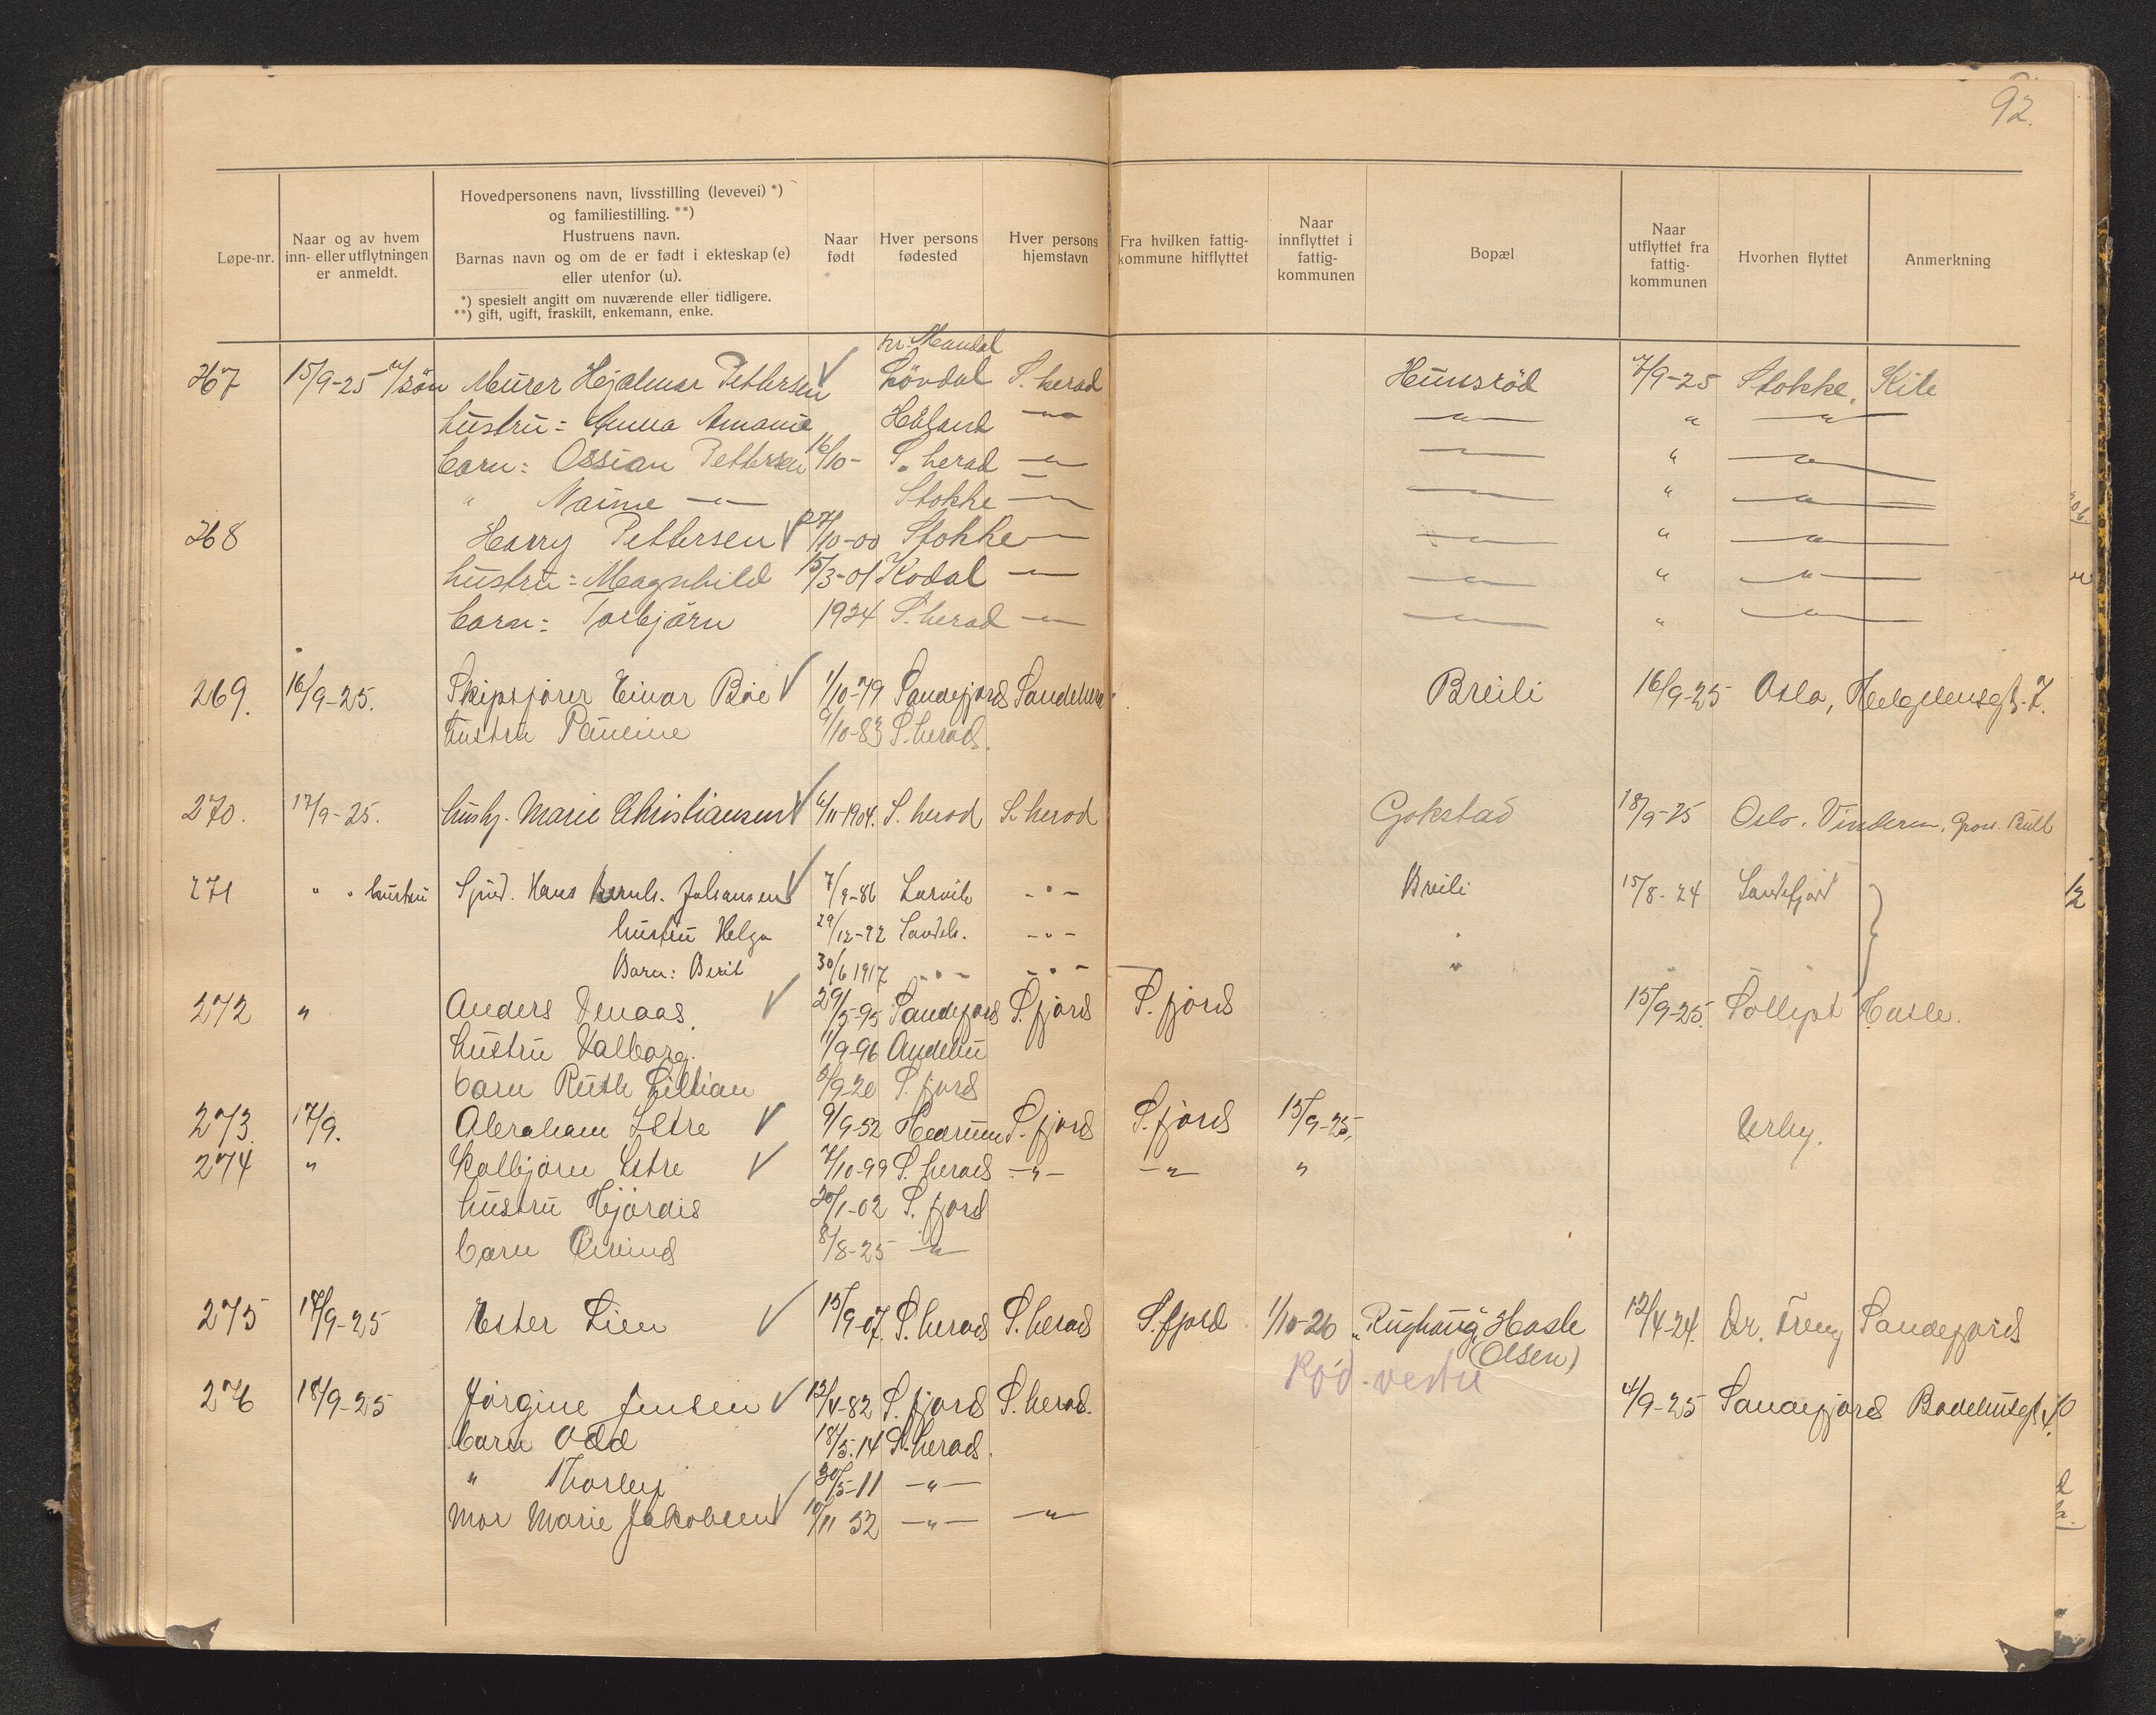 92.
Løpe-nr. | Naar og av hvem inn- eller utflytningen er anmeldt. | Hovedpersonens navn, livsstilling (levevei) *) og familiestilling. **) Hustruens navn. Barnas navn og om de er født i ekteskap (e) eller utenfor (u). *) spesielt angitt om nuværende eller tidligere. **) gift, ugift, fraskilt, enkemann, enke. | Naar født | Hver persons fødested | Hver persons hjemstavn | Fra hvilken fattig-kommune hitflyttet | Naar innflyttet i fattig-kommunen | Bopæl | Naar utflyttet fra fattig-kommunen | Hvorhen flyttet | Anmerkning
nr. Mandal
267 15/9-25 Murer Hjalmar Pettersen Lövdal S. herad Hunsröd 7/9-25 Stokke. Kile
hustru: Anna Amanie — " — — " — " — " —
barn: Ossian Pettersen 16/10- S. herad — " — — " — " — " —
" — " — Stokke — " — — " — " — " —
268 Harry Pettersen 27/10-00 Stokke — " — — " — " — " —
hustru: Magnhild 15/3-01 Kodal — " — — " — " — " —
barn: Torbjörn 1924 S. herad — " — — " — " — " —
269. 16/9-25. Skipsförer Einar Böe 1/10-79 Sandefjord Sandeherad Breili 16/9-25 Oslo, 7.
hustru Pauline 9/10-83 S. herad.
270. 17/9-25. Marie Christiansen 6/11-1904. S. herad S. herad Gokstad 18/9-25 Oslo. Vinderen.
271 " " hustru Hans Johansen 7/9-86 Larvik - " - Breili 15/8-24 Sandefjord
hustru Helga 29/12-92 Sandeh. - " - "
Barn: Berit 30/6 1917 - " - - " - "
272 " Anders Venaas. 29/5-95 Sandefjord S. fjord S. fjord 15/9-25. Hasle.
hustru Valborg. 1/9-96 Andebu
barn Ruth Lillian 3/9-20 S. fjord
273. 17/9. Abraham Istre 9/9-52 Hedrum S. fjord S. fjord 15/9-25, Virby.
274 " Kolbjörn Istre 7/10-99 S. herad - " - - " - "
hustru Hjördis 20/1-02 S. fjord
barn Eivind 8/8-25 — " —
275 17/9-25 Ester Lien 15/9-07. S. herad S. herad S. fjord 1/10-26 Hasle 12/4-24. Dr. Sandefjord
(Olsen)
Röd. vestre
276 18/9-25 Jörgine Jensen 12/4-82 S. fjord S. herad. 4/9-25 Sandefjord Badehusgt. 10
barn Odd 18/5.14 S. herad.
" Thorleif 30/5-11 — " —
Mor Marie Jakobsen 10/11 52 — " — — " —